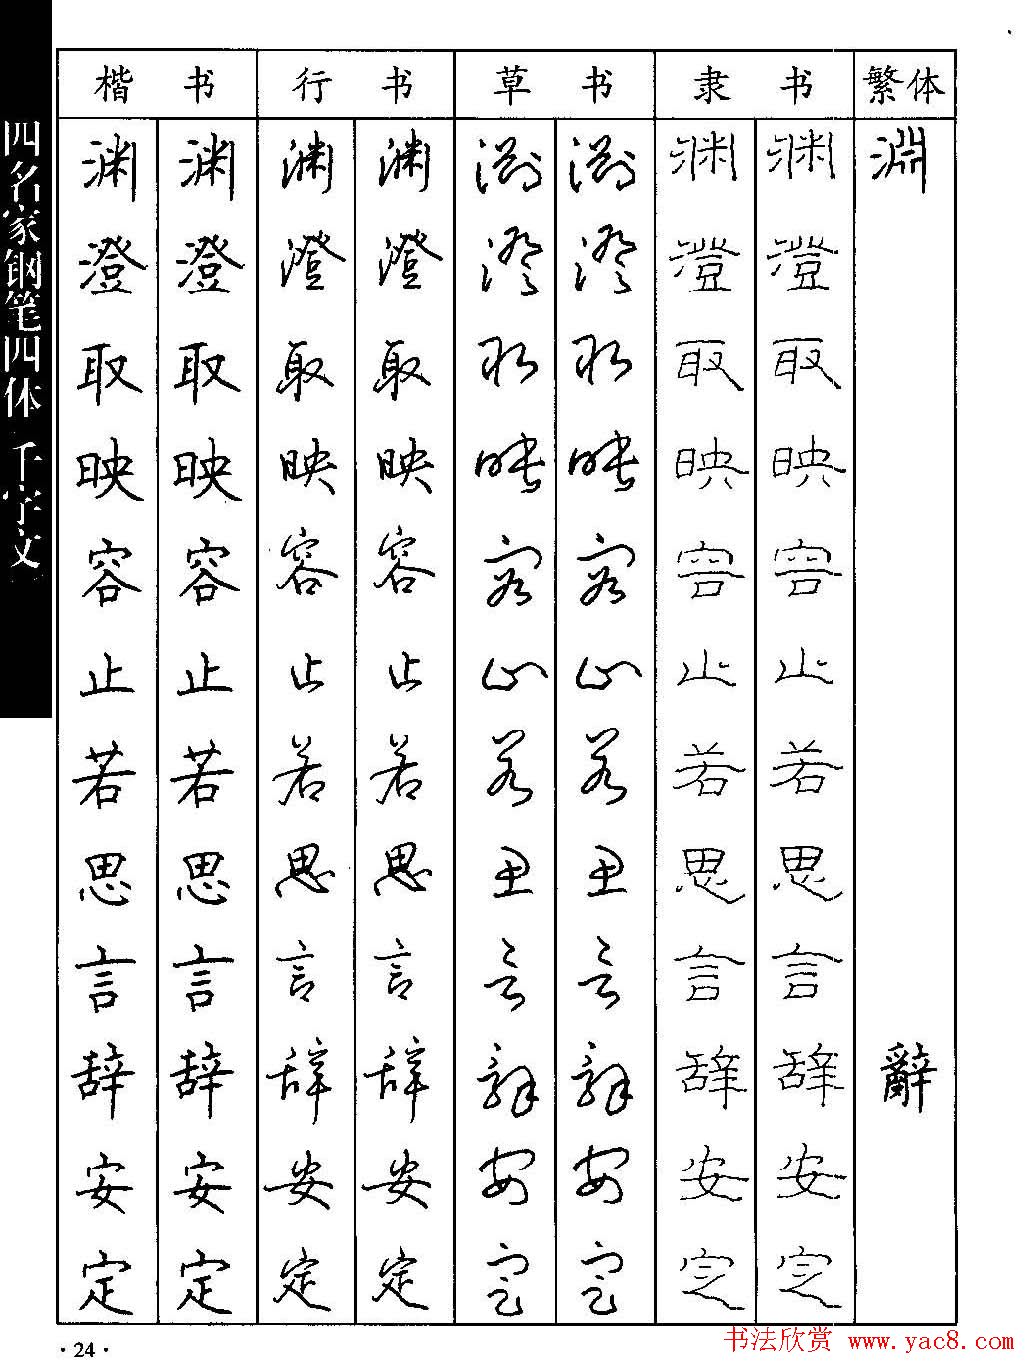 四名家钢笔四体 千字文
楷书 行书 草书 隶书 繁体
渊 渊 渊 渊 渊 渊 渊 渊 淵
澄 澄 澄 澄 澄 澄 澄 澄
取 取 取 取 取 取 取 取
映 映 映 映 映 映 映 映
容 容 容 容 容 容 容 容
止 止 止 止 止 止 止 止
若 若 若 若 若 若 若 若
思 思 思 思 思 思 思 思
言 言 言 言 言 言 言 言
辞 辞 辞 辞 辞 辞 辞 辞 辭
安 安 安 安 安 安 安 安
定 定 定 定 定 定 定 定
·24·
书法欣赏 www.yac8.com